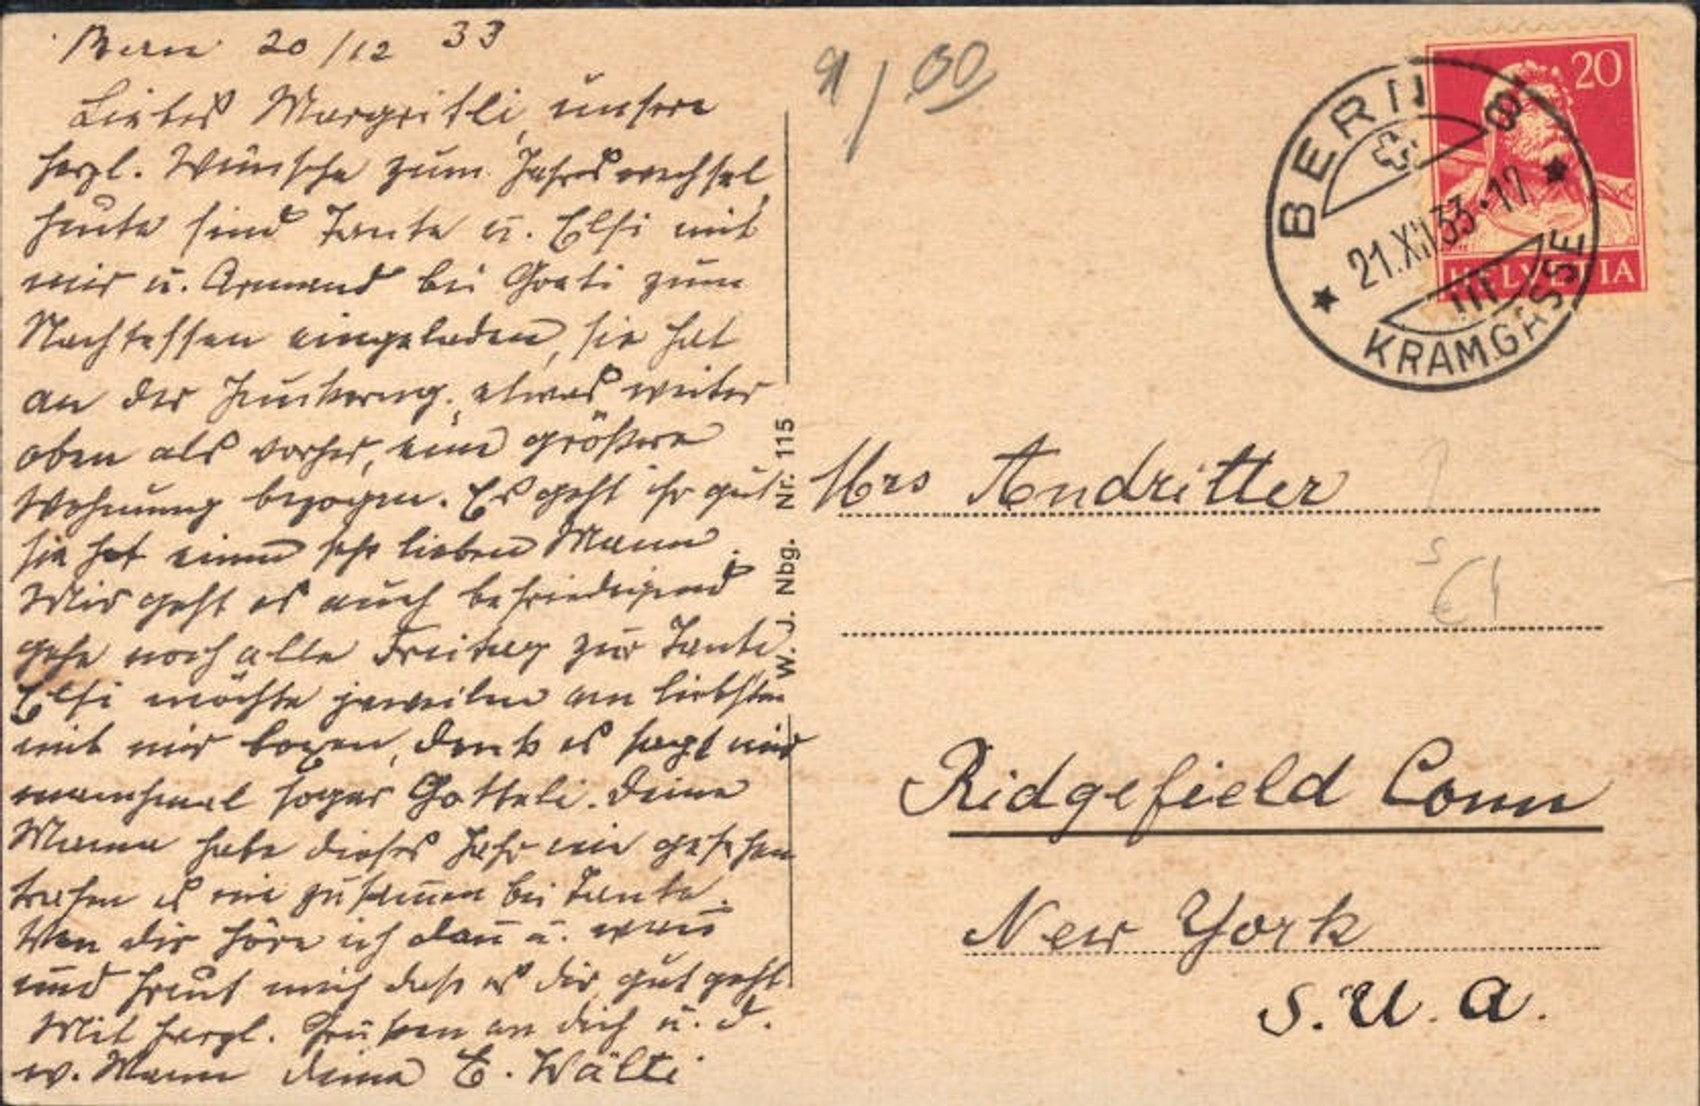 Bern 20/12 33
Liebes Margritli, unsere
herzl. Wünsche zum Jahreswechsel,
heute sind Tante u. Elsi mit
mir u. Armand bei Greti zum
Nachtessen eingeladen, sie hat
an der Junkerng. etwas weiter
oben als vorher, eine größere
Wohnung bezogen. Es geht ihr gut
sie hat einen sehr lieben Mann.
Mir geht es auch befriedigend
gehe noch alle Freitag zur Tante
Elsi möchte jeweilen am liebsten
mit mir boxen, denk es sagt mir
manchmal sogar Gotteli. Deine
Mama habe dieses Jahr nie gesehen
trafen es nie zusamen bei Tante.
Von dir höre ich dan u. wan
und freut mich daß es dir gut geht
Mit herzl. Grüßen an dich u. d.
w. Mann deine E. Wälti
W. J. Nbg. Nr. 115
BERN 8
21.XII.33.
III
KRAMGASSE
20
HELVETIA
Mrs Andritter
Ridgefield Conn
New York
S.U.A.